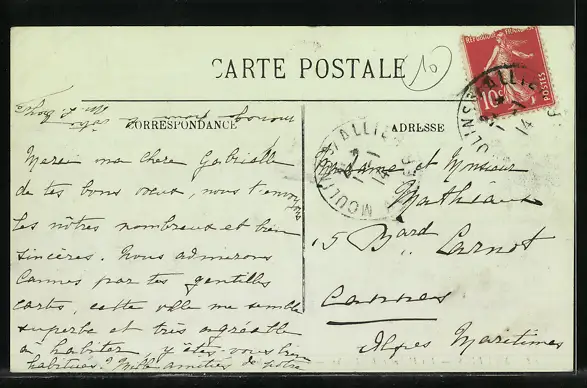 CARTE POSTALE
10
RÉPUBLIQUE FRANÇAISE
10c
POSTES
CORRESPONDANCE
ADRESSE
MOULINS ALLIER
14
MOULINS ALLIER
14
Merci ma chère Gabrielle
de tes bons voeux, nous t'envoyons
les nôtres nombreux et bien
sincères. Nous admirons
Cannes par tes gentilles
cartes, cette ville me semble
superbe et très agréable
à habiter, y êtes-vous bien
habitués? Mille amitiés de notre
Madame et Monsieur
Mathieu
15 Bard Carnot
Cannes
Alpes Maritimes